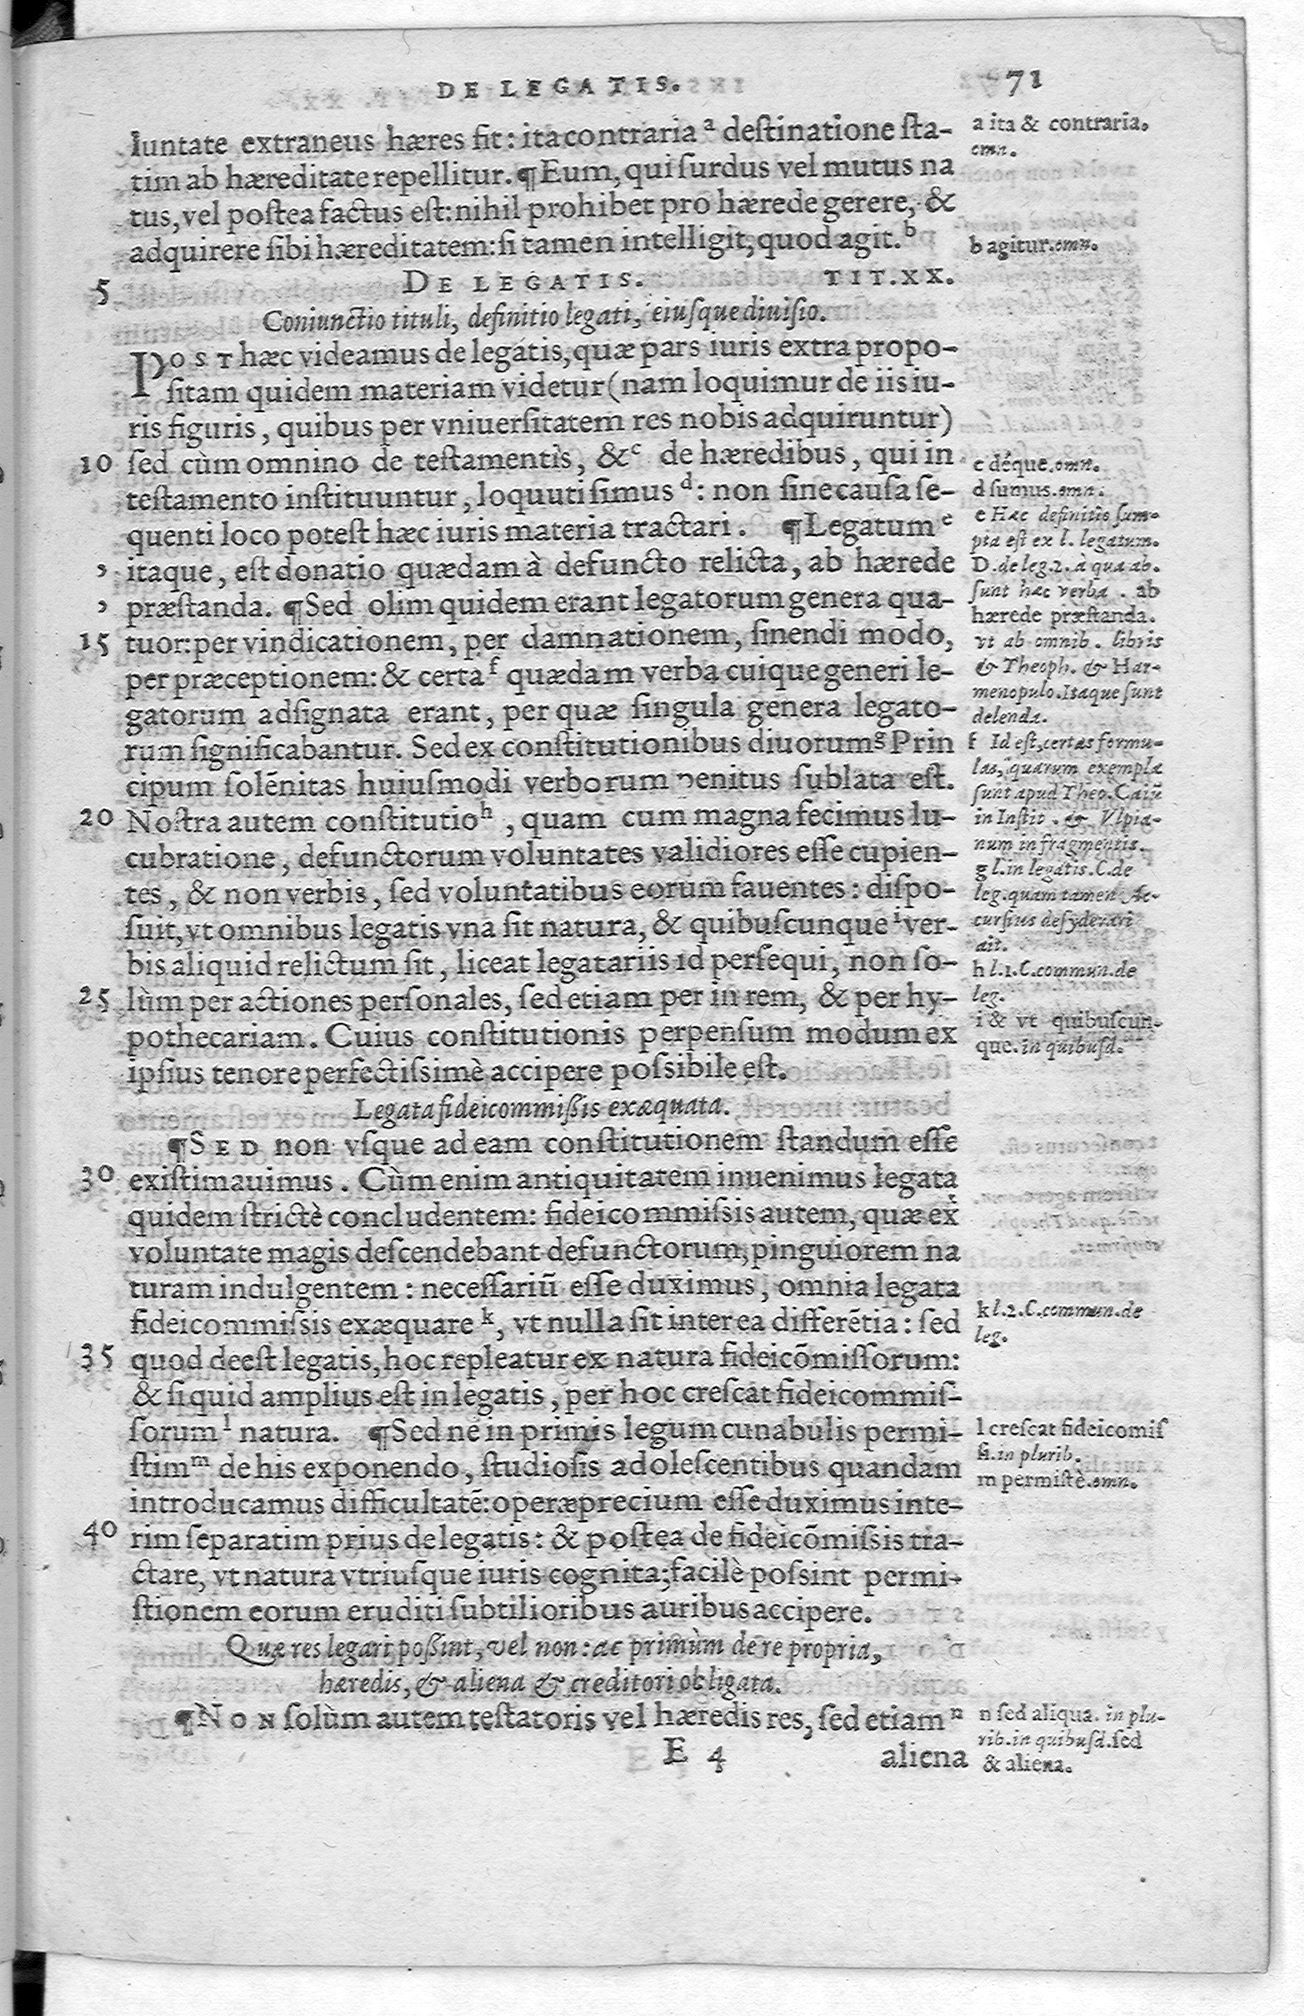 DE LEGATIS. 71
luntate extraneus hæres fit: ita contraria a destinatione sta-
tim ab hæreditate repellitur. ¶Eum, qui surdus vel mutus na
tus, vel postea factus est: nihil prohibet pro hærede gerere, &
adquirere sibi hæreditatem: si tamen intelligit, quod agit. b
5 DE LEGATIS. TIT. XX.
Coniunctio tituli, definitio legati, eiusque diuisio.
POST hæc videamus de legatis, quæ pars iuris extra propo-
sitam quidem materiam videtur (nam loquimur de iis iu-
ris figuris, quibus per vniuersitatem res nobis adquiruntur)
10 sed cùm omnino de testamentis, & c de hæredibus, qui in
testamento instituuntur, loquuti simus d: non sine causa se-
quenti loco potest hæc iuris materia tractari. ¶Legatum e
, itaque, est donatio quædam à defuncto relicta, ab hærede
, præstanda. ¶Sed olim quidem erant legatorum genera qua-
15 tuor: per vindicationem, per damnationem, sinendi modo,
per præceptionem: & certa f quædam verba cuique generi le-
gatorum adsignata erant, per quæ singula genera legato-
rum significabantur. Sed ex constitutionibus diuorum g Prin
cipum solēnitas huiusmodi verborum penitus sublata est.
20 Nostra autem constitutio h, quam cum magna fecimus lu-
cubratione, defunctorum voluntates validiores esse cupien-
tes, & non verbis, sed voluntatibus eorum fauentes: dispo-
suit, vt omnibus legatis vna sit natura, & quibuscunque i ver-
bis aliquid relictum sit, liceat legatariis id persequi, non so-
25 lùm per actiones personales, sed etiam per in rem, & per hy-
pothecariam. Cuius constitutionis perpensum modum ex
ipsius tenore perfectissimè accipere possibile est.
Legata fideicommißis exæquata.
¶SED non vsque ad eam constitutionem standum esse
30 existimauimus. Cùm enim antiquitatem inuenimus legata
quidem strictè concludentem: fideicommissis autem, quæ ex
voluntate magis descendebant defunctorum, pinguiorem na
turam indulgentem: necessariū esse duximus, omnia legata
fideicommissis exæquare k, vt nulla sit inter ea differētia: sed
35 quod deest legatis, hoc repleatur ex natura fideicōmissorum:
& si quid amplius est in legatis, per hoc crescat fideicommis-
sorum l natura. ¶Sed ne in primis legum cunabulis permi-
stim m de his exponendo, studiosis adolescentibus quandam
introducamus difficultatē: operæprecium esse duximus inte-
40 rim separatim prius de legatis: & postea de fideicōmissis tra-
ctare, vt natura vtriusque iuris cognita; facilè possint permi-
stionem eorum eruditi subtilioribus auribus accipere.
Quæ res legari poßint, vel non: ac primùm de re propria,
hæredis, & aliena & creditori obligata.
¶NON solùm autem testatoris vel hæredis res, sed etiam n
E 4 aliena
a ita & contraria.
omn.
b agitur. omn.
c déque. omn.
d sumus. omn.
e Hæc definitio sum-
pta est ex l. legatum.
D. de leg. 2. à qua ab-
sunt hæc verba. ab
hærede præstanda.
vt ab omnib. libris
& Theoph. & Har-
menopulo. Itaque sunt
delenda.
f Id est, certas formu-
las, quarum exempla
sunt apud Theo. Caiū
in Instit. & Vlpia-
num in fragmentis.
g l. in legatis. C. de
leg. quam tamen Ac-
cursius desyderari
ait.
h l. 1. C. commun. de
leg.
i & vt quibuscun-
que. in quibusd.
k l. 2. C. commun. de
leg.
l crescat fideicomis
si. in plurib.
m permistè. omn.
n sed aliqua. in plu-
rib. in quibusd. sed
& aliena.